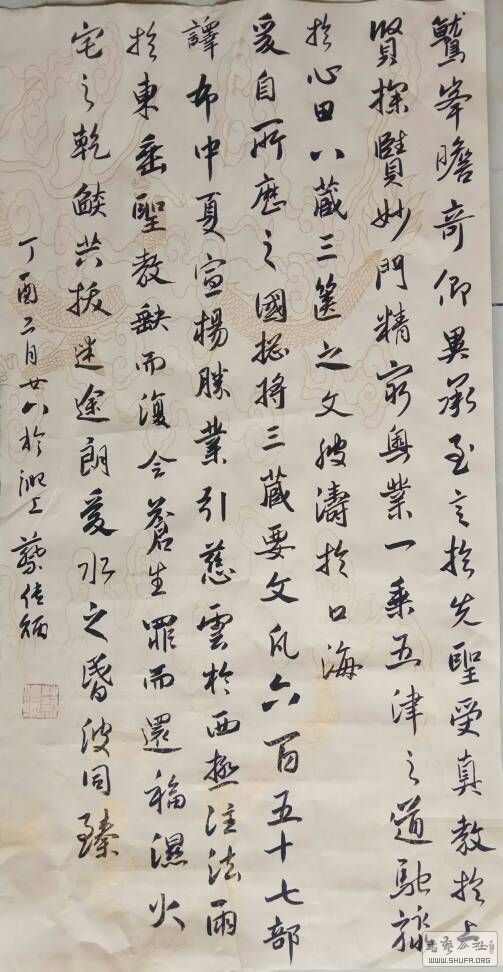 鷲峯瞻奇仰異承至言於先聖受真教於上
賢探賾妙門精窮奥業一乘五津之道馳驟
於心田八藏三篋之文波濤於口海
爰自所歷之國揔將三藏要文凡六百五十七部
譯布中夏宣楊勝業引慈雲於西極注法雨
於東垂聖教缺而復全蒼生罪而還福濕火
宅之乾燄共拔迷途朗愛水之昏波同臻
丁酉三月廿八於上蔡传炳
WWW.SHUFA.ORG